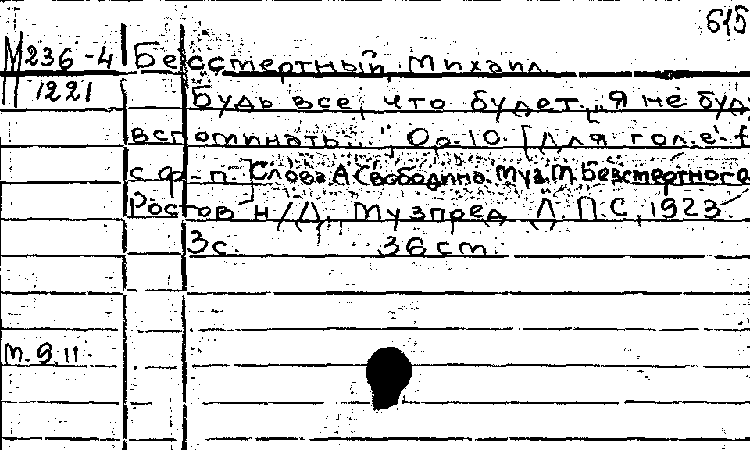 615
М 236-4 Бессмертный, Михаил
1221 Будь все, что будет. „Я не буду
вспоминать..." Ор. 10. [Для гол. e-f
с ф-п.] Слова А. Свободина. Муз. М. Бессмертного
Ростов н/Д, Музпред Д.П.С, 1923
3с. 36 cm.
М. 9.11.